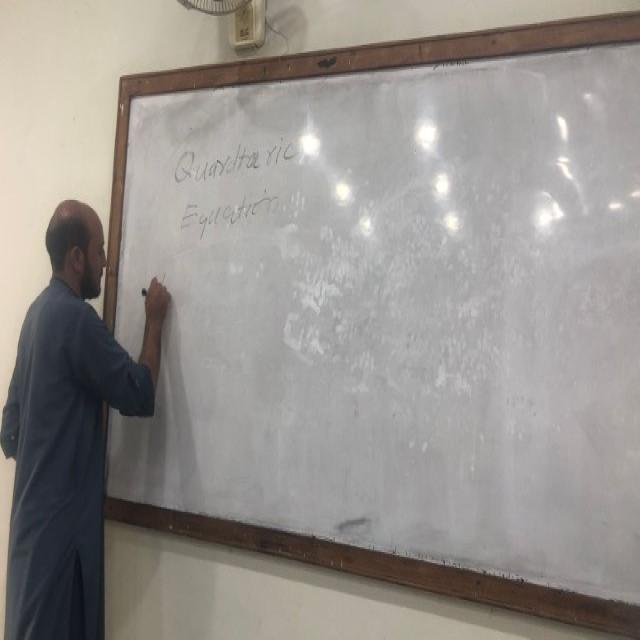 Quardtaric
Equation